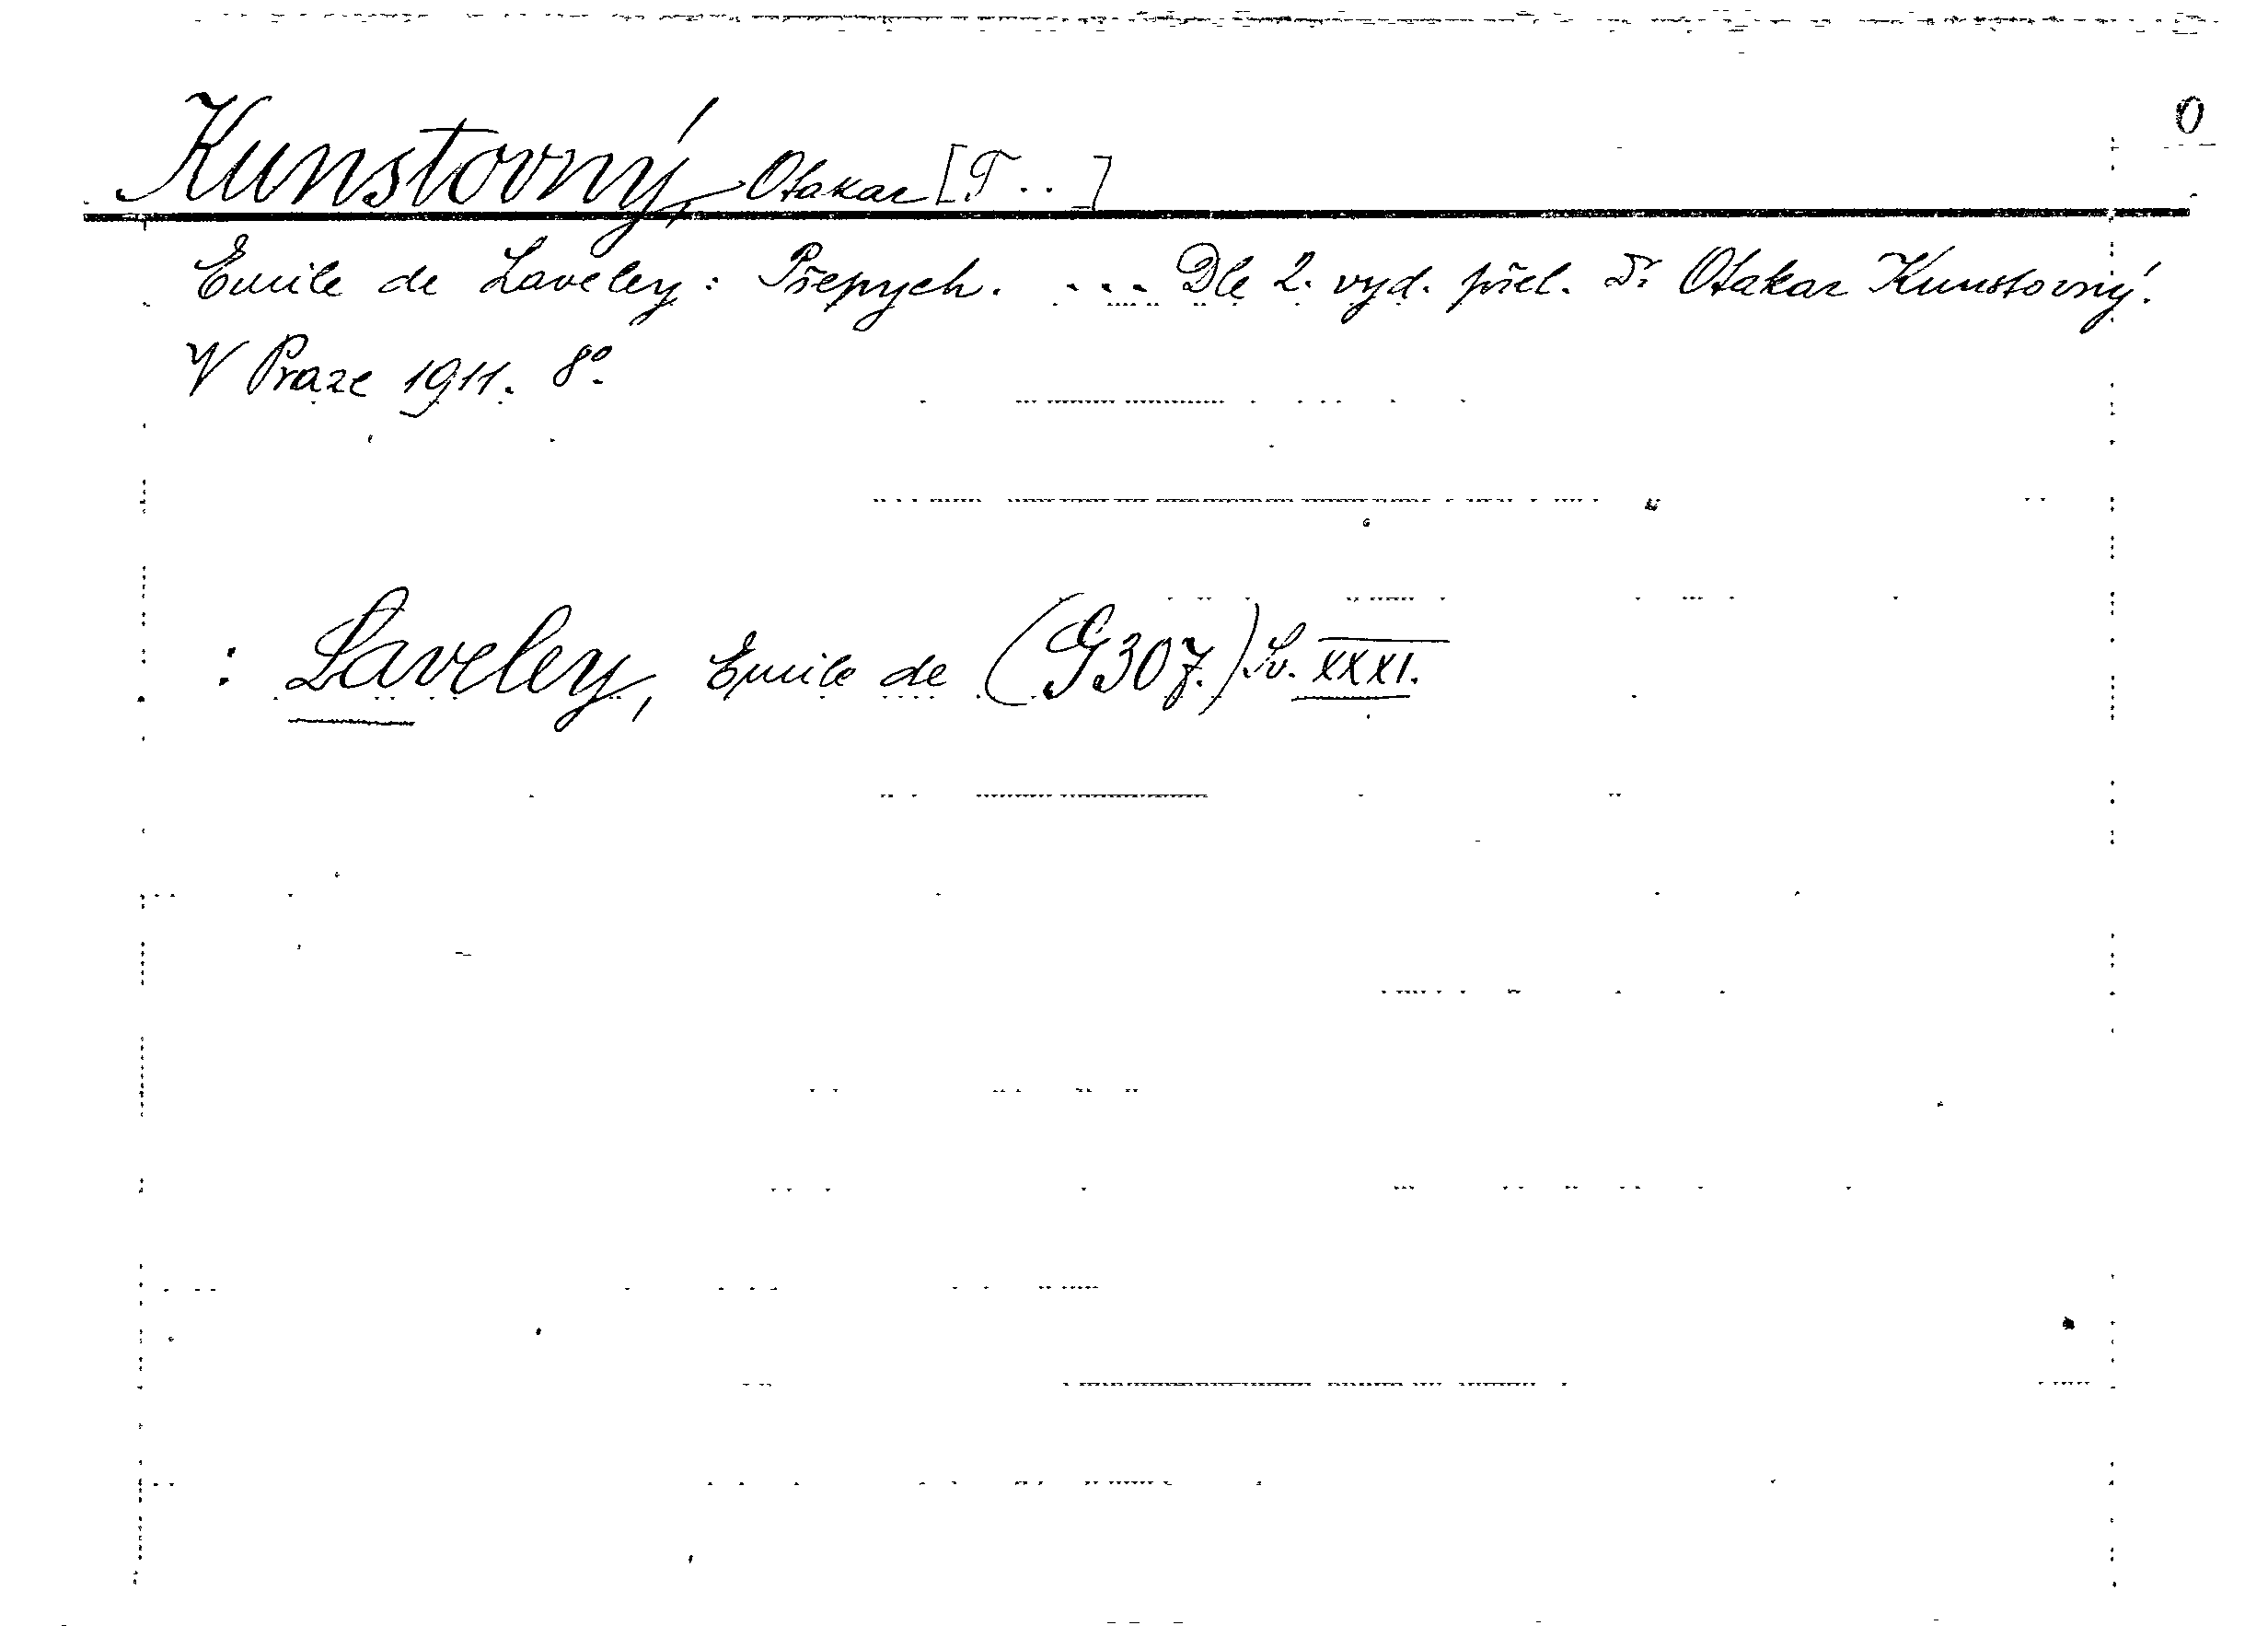 O
Kunstovný, Otakar [T..]
Emile de Laveley: Přepych. ... Dle 2. vyd. přel. Dr Otakar Kunstovný.
V Praze 1911. 8°.
: Laveley, Emile de (G307.) Sv. XXXI.